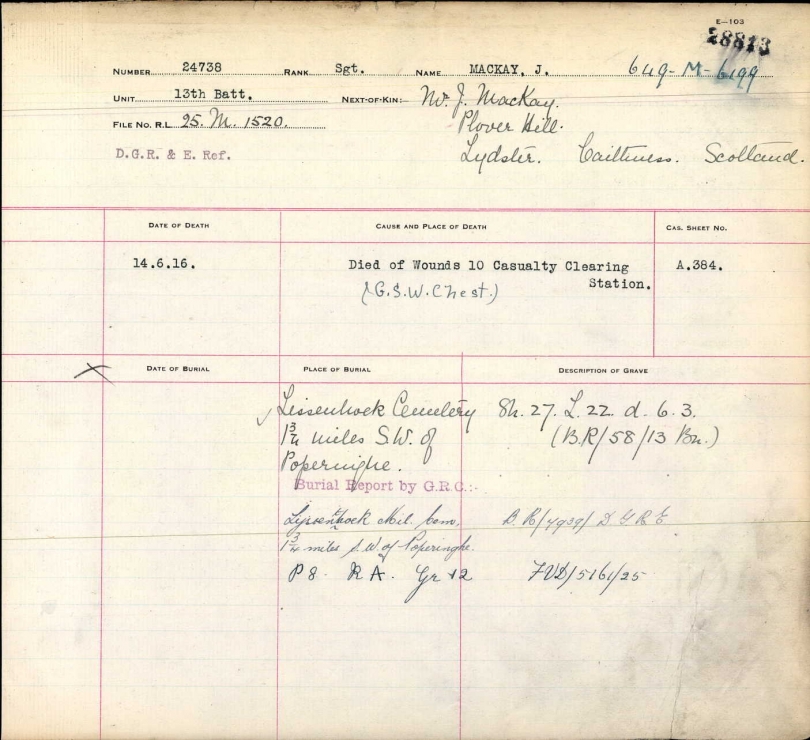 E—103
28813
NUMBER 24738 RANK Sgt. NAME MACKAY, J. 649-M-6199
UNIT 13th Batt. NEXT-OF-KIN:— Mr J. MacKay.
FILE NO. R.L. 25. M. 1520. Plover Hill.
D.G.R. & E. Ref. Lydster. Caithness. Scotland.
DATE OF DEATH CAUSE AND PLACE OF DEATH CAS. SHEET NO.
14.6.16. Died of Wounds 10 Casualty Clearing A.384.
Station.
(G.S.W. Chest.)
DATE OF BURIAL PLACE OF BURIAL DESCRIPTION OF GRAVE
Lissenhoek Cemetery Sh. 27. L. 22. d. 6. 3.
1¾ miles S.W. of (B.R/58/13 Bn.)
Poperinghe.
Burial Report by G.R.C.:-
Lyssenthoek Mil. Cem, B.R/4939/D G R E
1¾ miles S.W. of Poperinghe.
P8. R A. Gr 12 FVD/5161/25